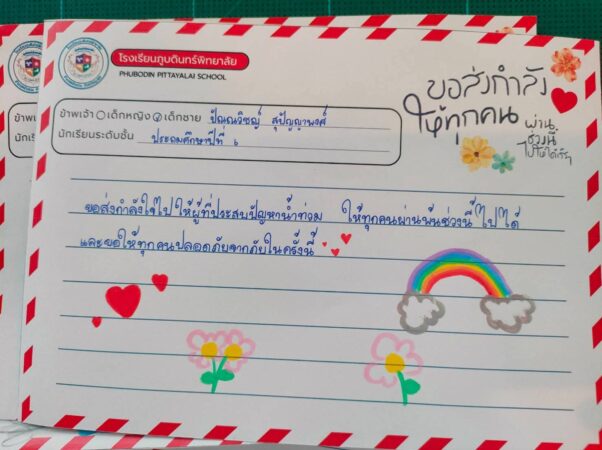 โรงเรียนภูบดินทร์พิทยาลัย
PHUBODIN PITTAYALAI SCHOOL
ขอส่งกำลัง
ให้ทุกคน
ผ่าน
ช่วงนี้
ไปให้ได้
ข้าพเจ้า เด็กหญิง เด็กชาย ปัณณวิชญ์ สุปัญญาพงศ์
นักเรียนระดับชั้น ประถมศึกษาปีที่ ๖
ขอส่งกำลังใจไปให้ผู้ที่ประสบปัญหาน้ำท่วม ให้ทุกคนผ่านพ้นช่วงนี้ไปได้
และขอให้ทุกคนปลอดภัยจากภัยในครั้งนี้